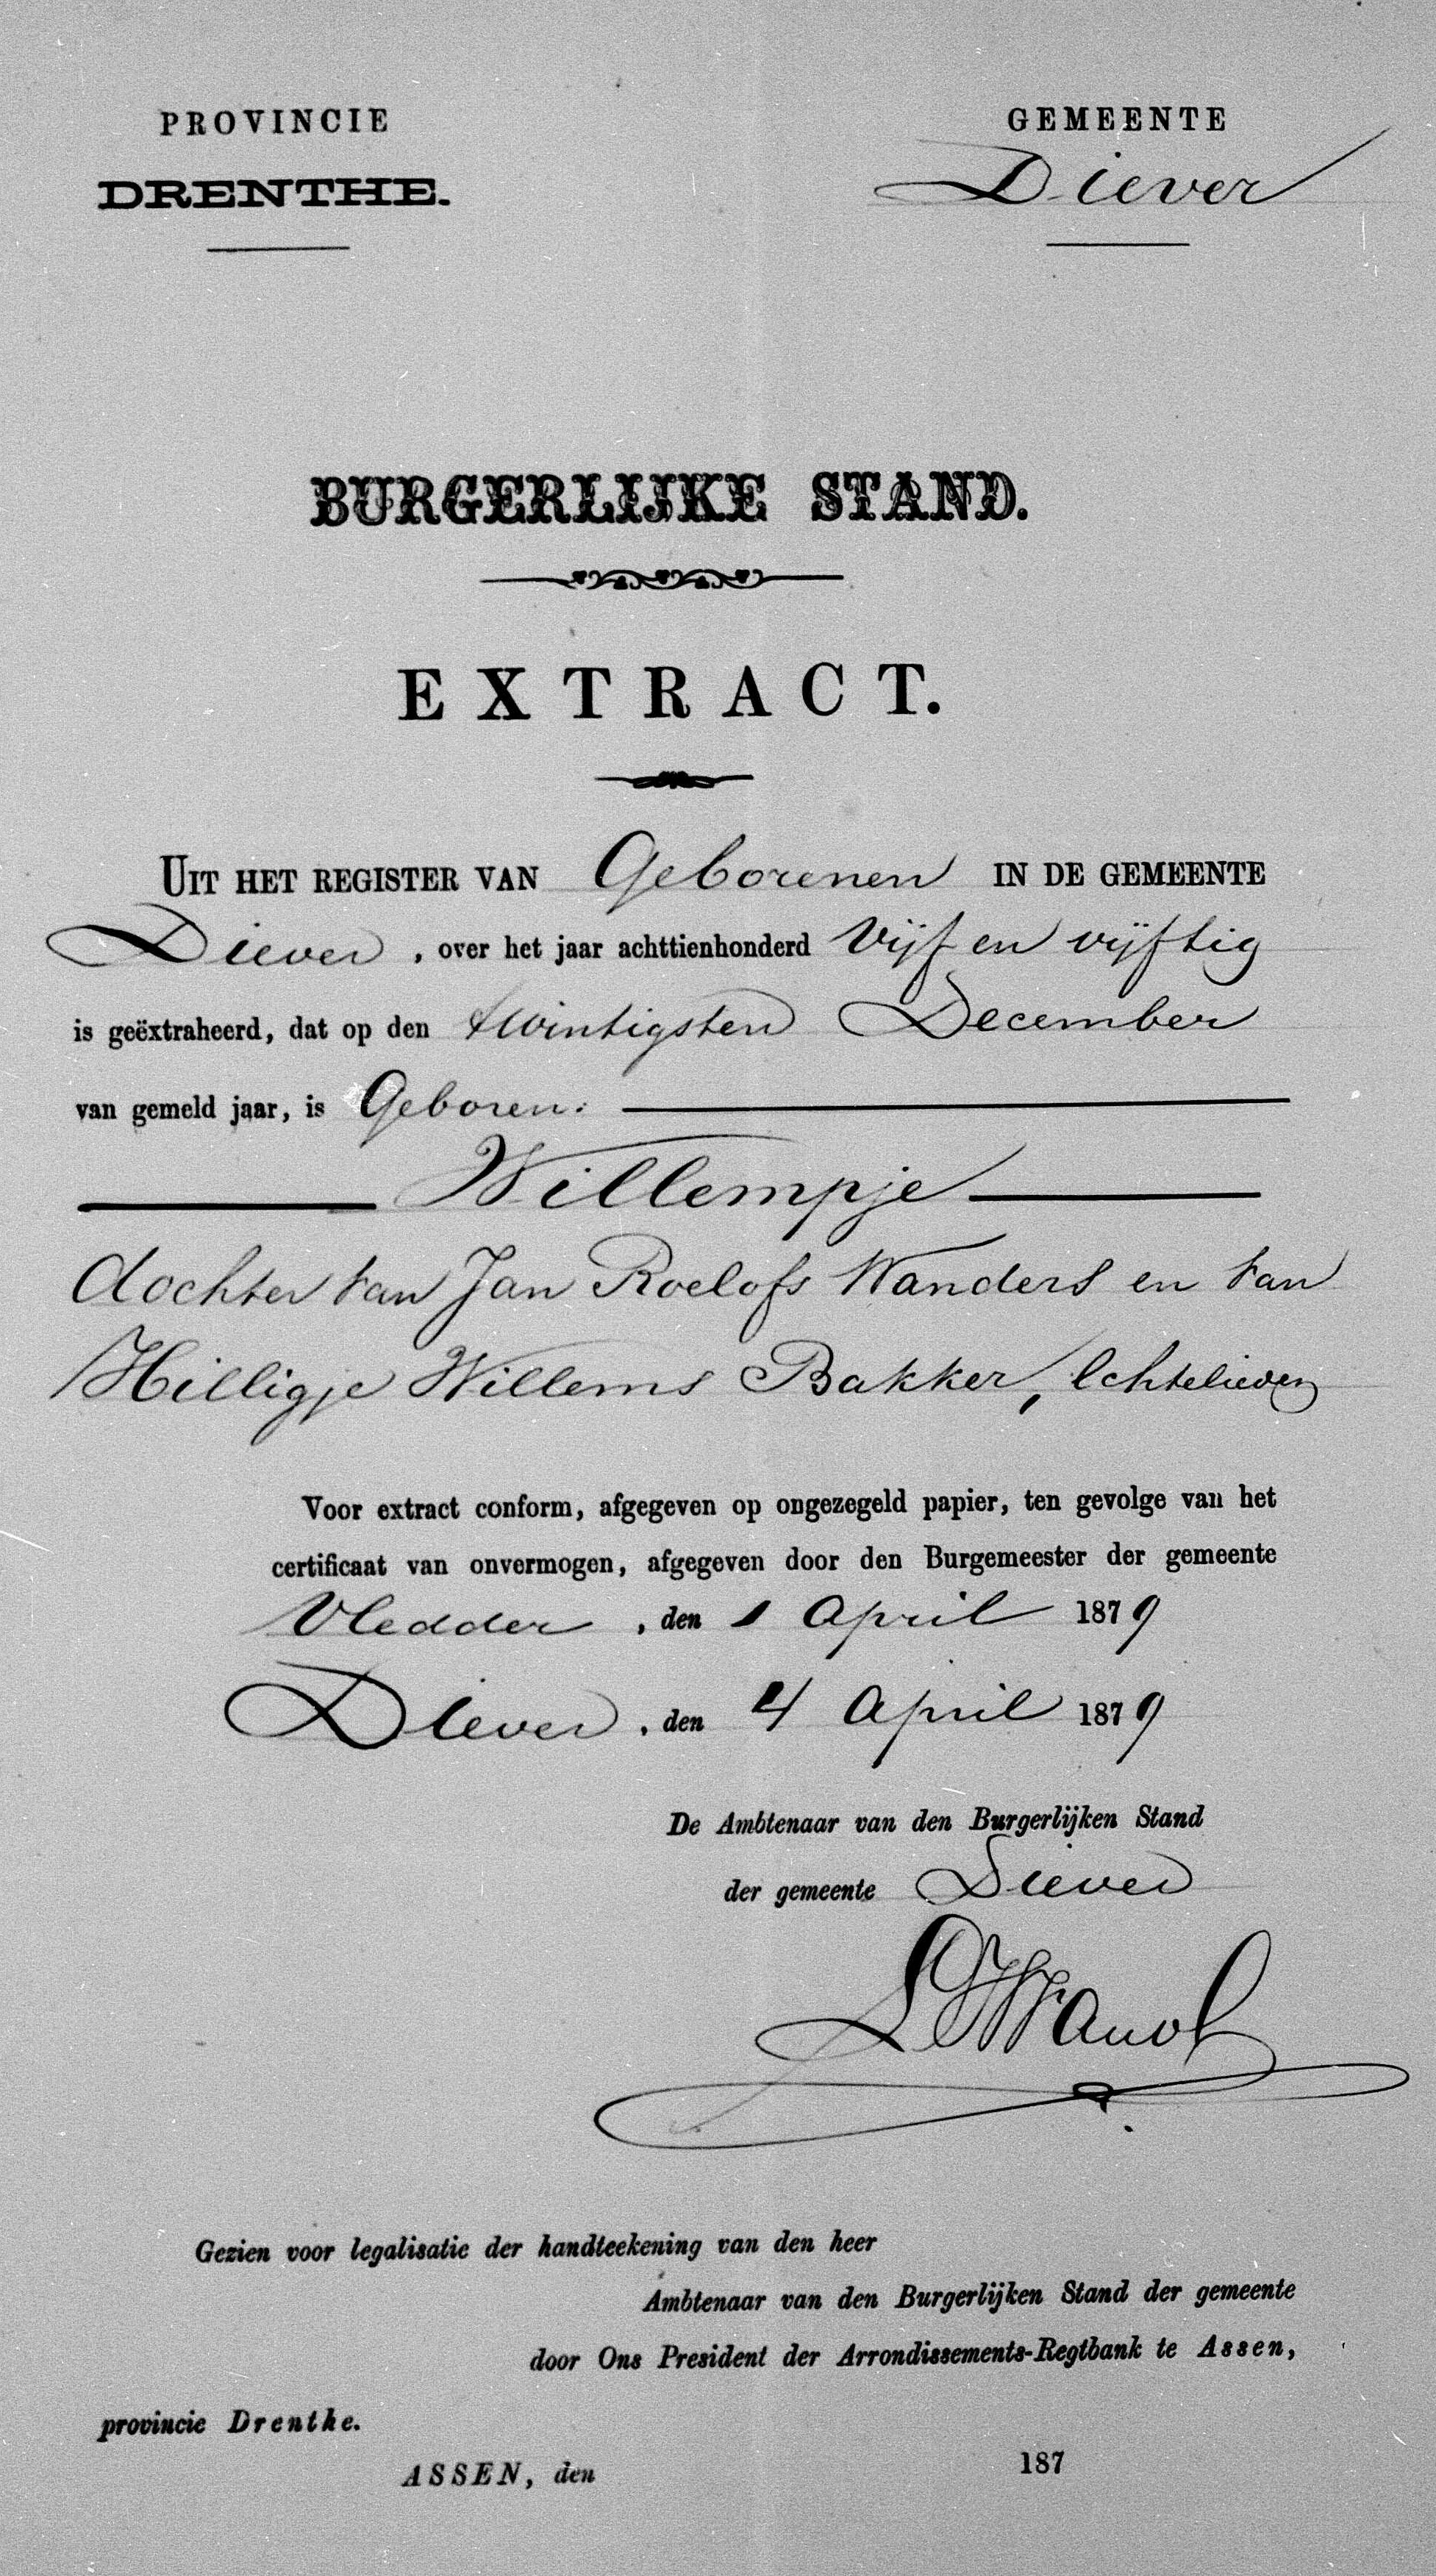 PROVINCIE
DRENTHE.
GEMEENTE
Diever
BURGERLIJKE STAND.
EXTRACT.
UIT HET REGISTER VAN Geborenen IN DE GEMEENTE
Diever, over het jaar achttienhonderd Vijf en vijftig
is geëxtraheerd, dat op den twintigsten December
van gemeld jaar, is Geboren:
Willempje
dochter van Jan Roelofs Wanders en van
Hilligje Willems Bakker, Echtelieden
Voor extract conform, afgegeven op ongezegeld papier, ten gevolge van het
certificaat van onvermogen, afgegeven door den Burgemeester der gemeente
Vledder, den 1 April 1879
Diever, den 4 April 1879
De Ambtenaar van den Burgerlijken Stand
der gemeente Diever
Gezien voor legalisatie der handteekening van den heer
Ambtenaar van den Burgerlijken Stand der gemeente
door Ons President der Arrondissements-Regtbank te Assen,
provincie Drenthe.
ASSEN, den 187